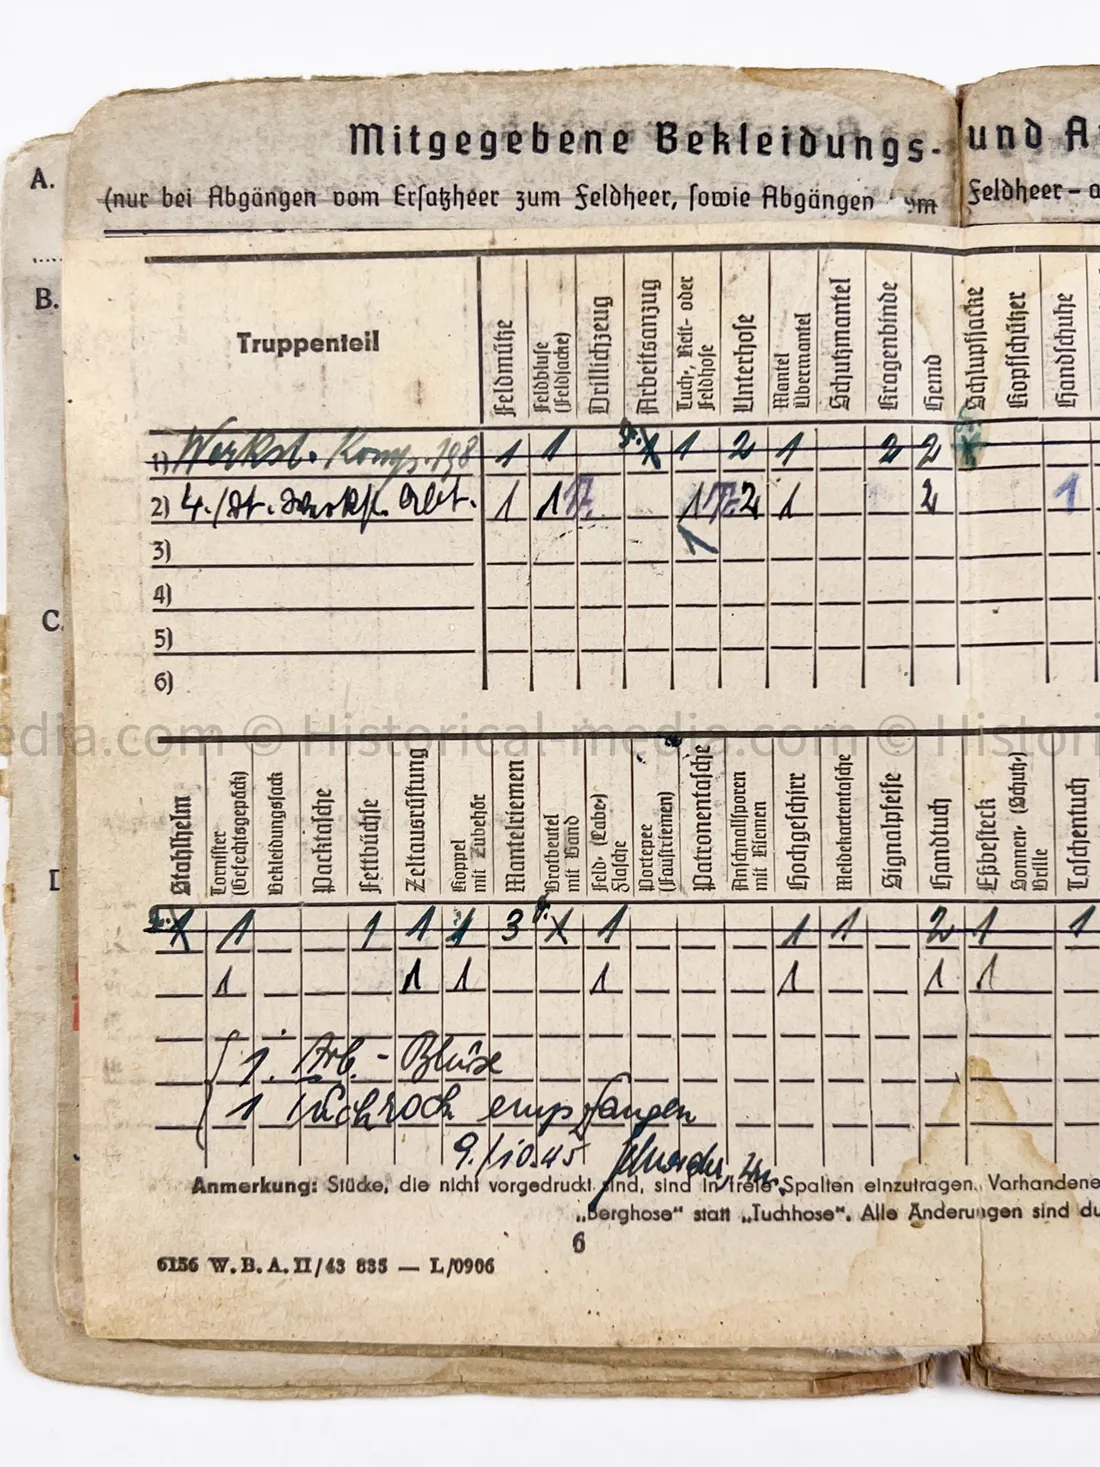 A.
B.
C.
D
Mitgegebene Bekleidungs- und A
(nur bei Abgängen vom Ersatzheer zum Feldheer, sowie Abgängen vom Feldheer – a
Truppenteil
Feldmütze
Feldbluse (Feldjacke)
Drillichzeug
Arbeitsanzug
Tuch-, Reit- oder Feldhose
Unterhose
Mantel Übermantel
Schutzmantel
Kragenbinde
Hemd
Schlupfjacke
Kopfschützer
Handschuhe
1) Werkst. Komp. 198 1 1 1 1 2 1 2 2 1
2) 4./ Werkst. Abt. 1 1 1 2 1 2 1
1
3)
4)
5)
6)
edia.com © Historical-media.com © Histori
Stahlhelm
Tornister (Gefechtsgepäck)
Bekleidungssack
Packtasche
Fettbüchse
Zeltausrüstung
Koppel mit Zubehör
Mantelriemen
Brotbeutel mit Band
Feld- (Labe-) Flasche
Portepee (Faustriemen)
Patronentasche
Anschnallsporen mit Riemen
Kochgeschirr
Meldekartentasche
Signalpfeife
Handtuch
Eßbesteck
Sonnen- (Schutz-) Brille
Taschentuch
1 1 1 1 1 3 1 1 1 1 2 1 1
1 1 1 1 1 1 1
1. Arb.- Bluse
1 Tuchrock empfangen
9./10.45
Anmerkung: Stücke, die nicht vorgedruckt sind, sind in freie Spalten einzutragen. Vorhandene
„Berghose“ statt „Tuchhose“. Alle Änderungen sind du
6
6156 W. B. A. II/43 835 — L/0906